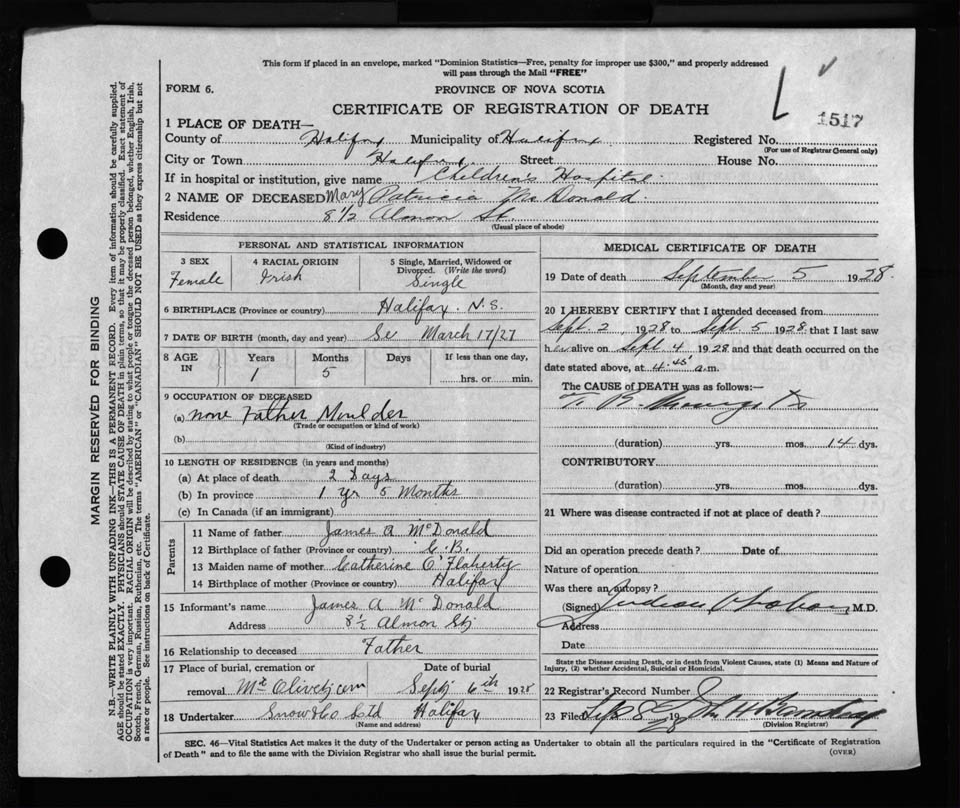 This form if placed in an envelope, marked "Dominion Statistics—Free, penalty for improper use $300," and properly addressed
will pass through the Mail "FREE"
FORM 6.
PROVINCE OF NOVA SCOTIA
CERTIFICATE OF REGISTRATION OF DEATH
1517
1 PLACE OF DEATH—
County of Halifax Municipality of Halifax Registered No.
(For use of Registrar General only)
City or Town Halifax Street House No.
If in hospital or institution, give name Children's Hospital
2 NAME OF DECEASED Mary Patricia McDonald
Residence 8 1/2 Almon St.
(Usual place of abode)
PERSONAL AND STATISTICAL INFORMATION
3 SEX Female
4 RACIAL ORIGIN Irish
5 Single, Married, Widowed or Divorced. (Write the word) Single
6 BIRTHPLACE (Province or country) Halifax. N.S.
7 DATE OF BIRTH (month, day and year) March 17/27
8 AGE IN Years 1 Months 5 Days If less than one day, hrs. or min.
9 OCCUPATION OF DECEASED
(a) none Father Moulder
(Trade or occupation or kind of work)
(b)
(Kind of industry)
10 LENGTH OF RESIDENCE (in years and months)
(a) At place of death 2 Days
(b) In province 1 yr 5 Months
(c) In Canada (if an immigrant)
Parents
11 Name of father James A McDonald
12 Birthplace of father (Province or country) C.B.
13 Maiden name of mother Catherine O'Flaherty
14 Birthplace of mother (Province or country) Halifax
15 Informant's name James A McDonald
Address 8½ Almon St
16 Relationship to deceased Father
17 Place of burial, cremation or removal Mt Olivet cem
Date of burial Sept 6th 1928
18 Undertaker Snow & Co Ltd Halifax
(Name and address)
MEDICAL CERTIFICATE OF DEATH
19 Date of death September 5 1928.
(Month, day and year)
20 I HEREBY CERTIFY that I attended deceased from
Sept. 2, 1928 to Sept. 5 1928 that I last saw
her alive on Sept. 4 1928 and that death occurred on the
date stated above, at 4.45 a.m.
The CAUSE of DEATH was as follows:—
T. B.
(duration) yrs. mos. 14 dys.
CONTRIBUTORY
(duration) yrs. mos. dys.
21 Where was disease contracted if not at place of death?
Did an operation precede death? Date of
Nature of operation
Was there an autopsy?
(Signed) M.D.
Address
Date
State the Disease causing Death, or in death from Violent Causes, state (1) Means and Nature of
Injury, (2) whether Accidental, Suicidal or Homicidal.
22 Registrar's Record Number
23 Filed Sept 8 1928
(Division Registrar)
SEC. 46—Vital Statistics Act makes it the duty of the Undertaker or person acting as Undertaker to obtain all the particulars required in the "Certificate of Registration
of Death" and to file the same with the Division Registrar who shall issue the burial permit.
(OVER)
MARGIN RESERVED FOR BINDING
N.B.—WRITE PLAINLY WITH UNFADING INK—THIS IS A PERMANENT RECORD. Every item of information should be carefully supplied.
AGE should be stated EXACTLY. PHYSICIANS should STATE CAUSE OF DEATH in plain terms, so that it may be properly classified. Exact statement of
OCCUPATION is very important. RACIAL ORIGIN will be described by stating to what people or tongue the deceased person belonged, whether English, Irish,
Scotch, French, German, Russian, Ruthenian, etc. The terms "AMERICAN" or "CANADIAN" SHOULD NOT BE USED as they express citizenship but not
a race or people. See instructions on back of Certificate.